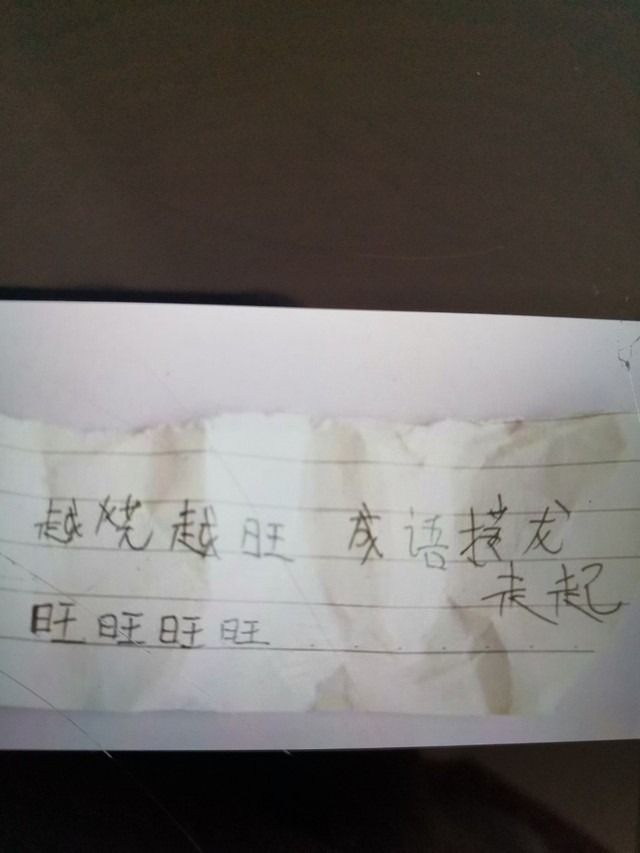 越烧越旺 成语接龙
走起
旺旺旺旺......